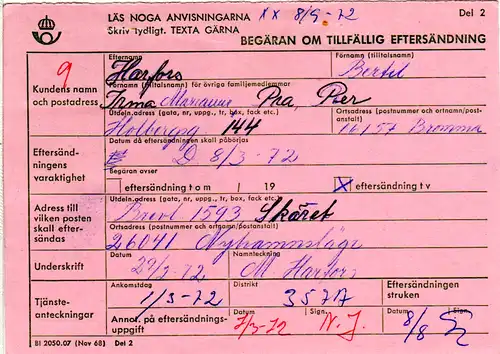 LÄS NOGA ANVISNINGARNA xx 8/9-72 Del 2
Skriv tydligt. TEXTA GÄRNA
BEGÄRAN OM TILLFÄLLIG EFTERSÄNDNING
9
Kundens namn och postadress
Efternamn Förnamn (tilltalsnamn)
Harfors Bertil
Förnamn (tilltalsnamn) för övriga familjemedlemmar
Irma Marianne Pia, Peer
Utdeln.adress (gata, nr, uppg., tr, box, fack etc.) Ortsadress (postnummer och ortnamn/postanstalt)
Holbergsg 144 16157 Bromma
Eftersändningens varaktighet
Datum då eftersändningen skall påbörjas
D 8/3-72
Begäran avser
eftersändning t o m / 19 X eftersändning t v
Adress till vilken posten skall eftersändas
Utdeln.adress (gata, nr, uppg, tr, box, fack etc.)
Brevl 1593 Skäret
Ortsadress (postnummer och ortnamn/postanstalt)
26041 Nyhamnsläge
Underskrift
Datum Namnteckning
29/2-72 M Harfors
Tjänsteanteckningar
Ankomstdag Distrikt Eftersändningen struken
1/3-72 357A
Annot. på eftersändningsuppgift Datum Sign. Datum Sign.
7/3-72 N.J. 8/8
Bl 2050.07 (Nov 68) Del 2